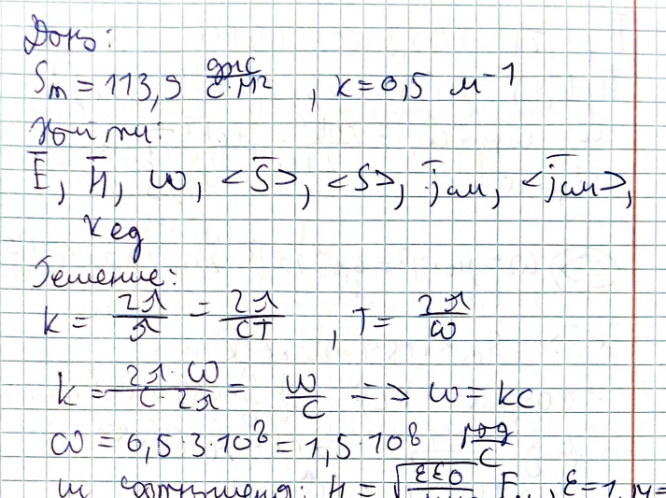 Дано:
Sm = 113,9 дж/с·м², k = 0,5 м⁻¹
Найти:
E̅, H̅, ω, <S̅>, <S>, j̅см, <j̅см>,
Kед
Решение:
k = 2π/λ = 2π/cT, T = 2π/ω
k = 2π·ω/c·2π = ω/c => ω = kc
ω = 0,5·3·10⁸ = 1,5·10⁸ рад/с
H = √εε0 ε=1,